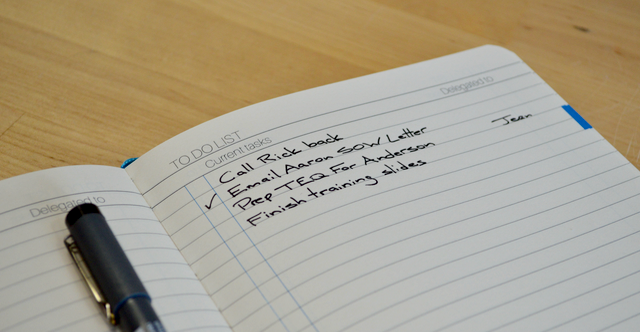 TO DO LIST
Current tasks Delegated to
Call Rick back
Email Aaron SOW Letter Jean
✓ Prep TEQ For Anderson
Finish training slides
Delegated to